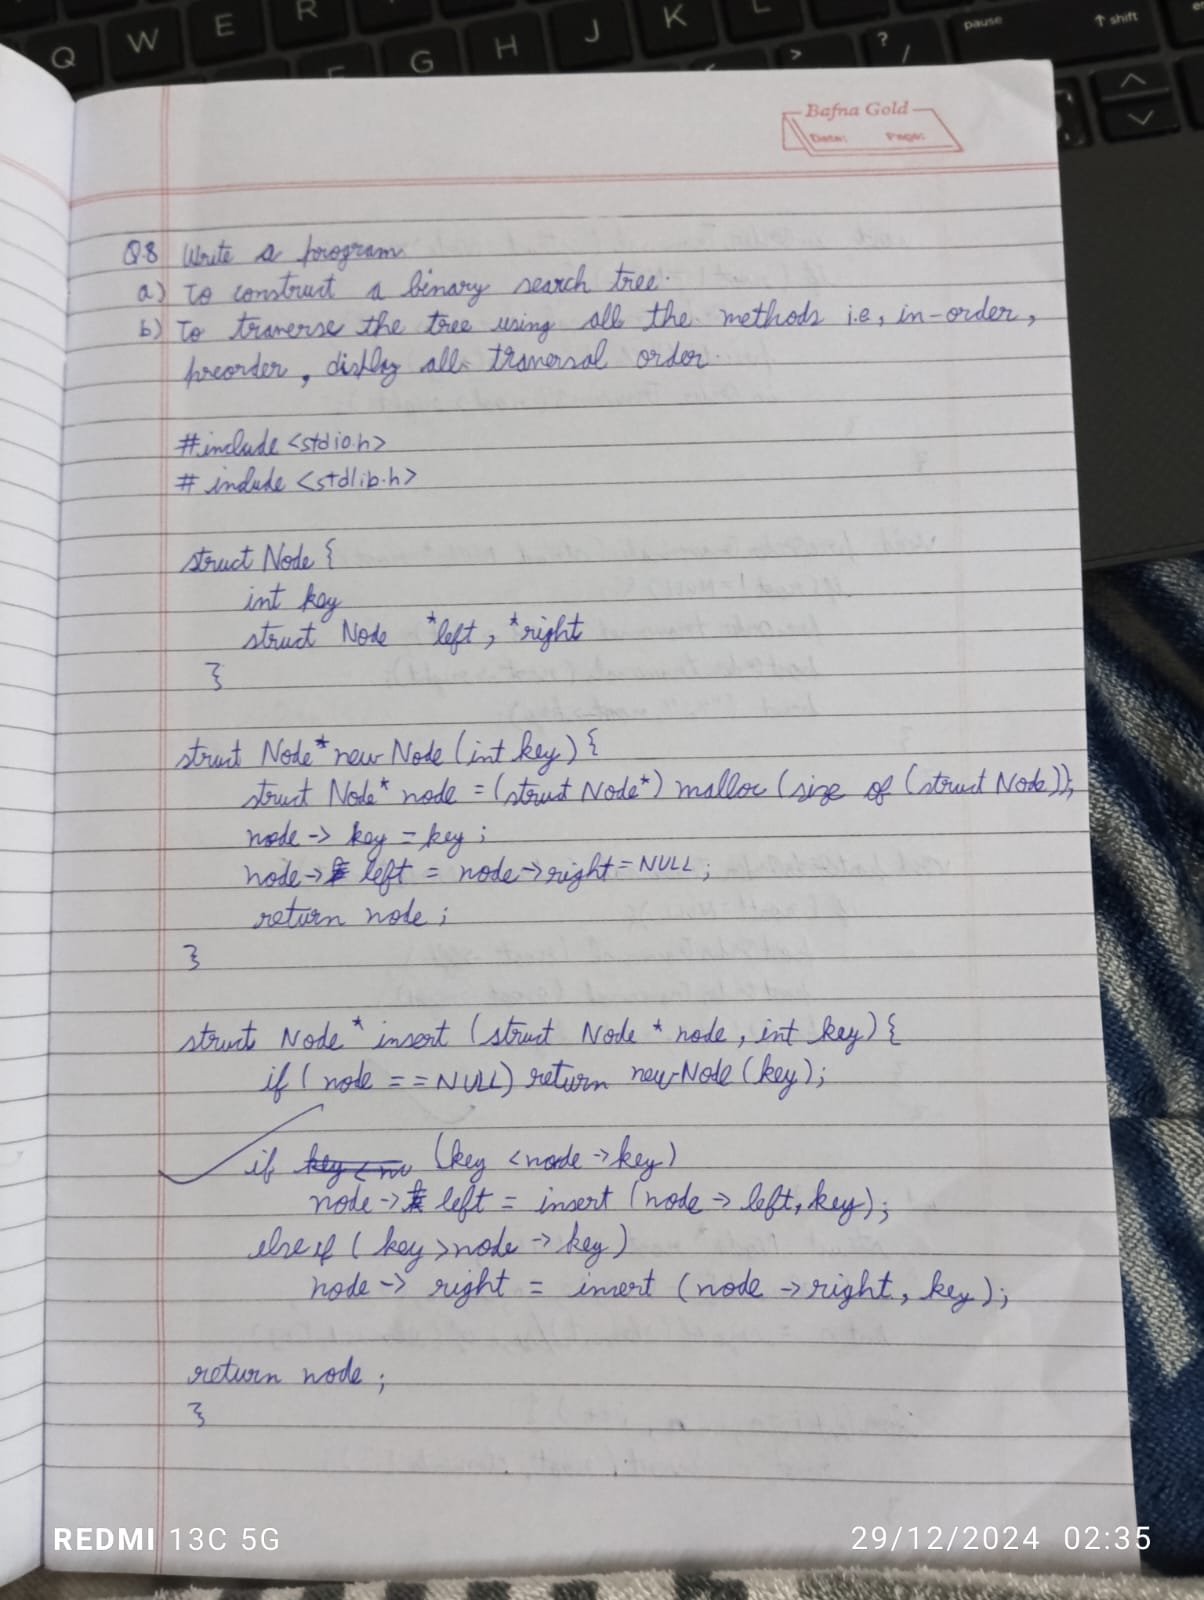 Q W E R J K L G H
pause
↑ shift
Bafna Gold
Date: Page:
Q8 Write a program
a) To construct a binary search tree.
b) To traverse the tree using all the methods i.e, in-order,
preorder, display all traversal order.
#include <stdio.h>
# include <stdlib.h>
struct Node {
int key
struct Node *left, *right
}
struct Node* new Node (int key) {
struct Node* node = (struct Node*) malloc (size of (struct Node));
node -> key = key ;
node -> left = node -> right = NULL ;
return node ;
}
struct Node * insert (struct Node * node, int key) {
if ( node = = NULL) return new Node (key) ;
if (key < node -> key)
node -> left = insert (node -> left, key) ;
else if ( key > node -> key )
node -> right = insert (node -> right, key) ;
return node ;
}
REDMI 13C 5G
29/12/2024 02:35